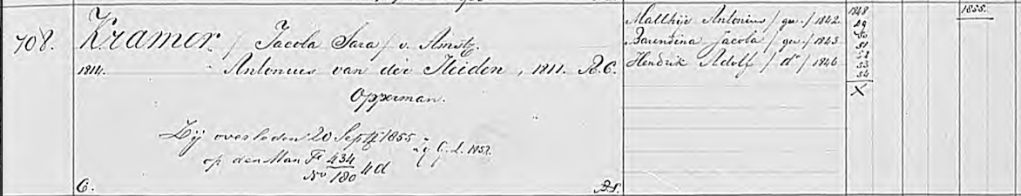 708. Kramer / Jacoba Sara / v. Amst.
1814. Antonius van der Heiden, 1811. R.C.
Opperman.
Zij overleden 20 Sept 1855
op den Man Fo 434
No 180 4d
C.
Matthie Antonius / gw. / 1842.
Barendina Jacoba / gw. / 1843
Hendrik Adolf / do / 1846
1848
49
50
51
52
53
54
X
1855.